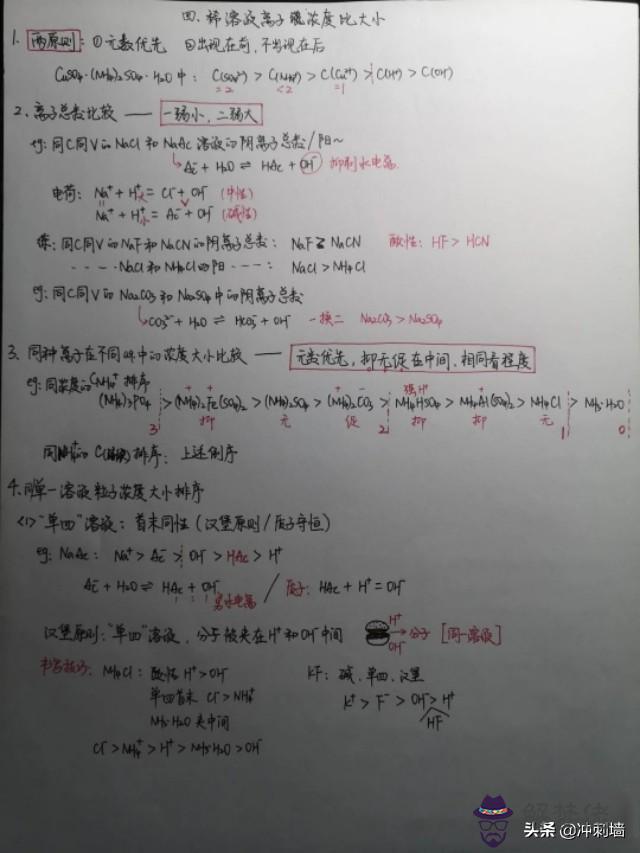 四、稀溶液离子浓度比大小
1. 两原则：①元数优先 ②出现在前，不出现在后
CuSO₄·(NH₄)₂SO₄·H₂O中：C(SO₄²⁻) > C(NH₄⁺) > C(Cu²⁺) > C(H⁺) > C(OH⁻)
=2 <2 =1
2、离子总数比较 —— 一弱小，二弱大
eg: 同C同V的NaCl和NaAc溶液的阴离子总数/阳~
Ac⁻ + H₂O ⇌ HAc + OH⁻ 抑制水电离
电荷： Na⁺ + H⁺大 = Cl⁻ + OH⁻ (中性)
Na⁺ + H⁺小 = Ac⁻ + OH⁻ (碱性)
练：同C同V的NaF和NaCN的阴离子总数： NaF ≥ NaCN 酸性：HF > HCN
- - - - NaCl和NH₄Cl的阳 - - - ： NaCl > NH₄Cl
eg: 同C同V的Na₂CO₃和Na₂SO₄中的阴离子总数
CO₃²⁻ + H₂O ⇌ HCO₃⁻ + OH⁻ 一换二 Na₂CO₃ > Na₂SO₄
3、同种离子在不同 中的浓度大小比较 —— 元数优先，抑无促在中间、相同看程度
eg: 同浓度的C NH₄⁺ 排序
+ + + - 强H⁺ +
(NH₄)₃PO₄ > (NH₄)₂Fe(SO₄)₂ > (NH₄)₂SO₄ > (NH₄)₂CO₃ > NH₄HSO₄ > NH₄Al(SO₄)₂ > NH₄Cl > NH₃·H₂O
3 抑 无 促 2 抑 抑 无 1 0
同NH₄⁺的C 排序：上述倒序
4、同单一溶液粒子浓度大小排序
<1>"单四"溶液：首末同性（汉堡原则/质子守恒）
eg: NaAc： Na⁺ > Ac⁻ > OH⁻ > HAc > H⁺
Ac⁻ + H₂O ⇌ HAc + OH⁻ / 质子： HAc + H⁺ = OH⁻
1 : 1 : 水电离
汉堡原则："单四"溶液，分子被夹在H⁺和OH⁻中间 H⁺ → 分子 OH⁻ [同一溶液]
NH₄Cl： 酸 H⁺ > OH⁻ KF： 碱、单四、汉堡
单四首末 Cl⁻ > NH₄⁺ K⁺ > F⁻ > OH⁻ > H⁺
NH₃·H₂O 夹中间 HF
Cl⁻ > NH₄⁺ > H⁺ > NH₃·H₂O > OH⁻
头条 @冲刺墙